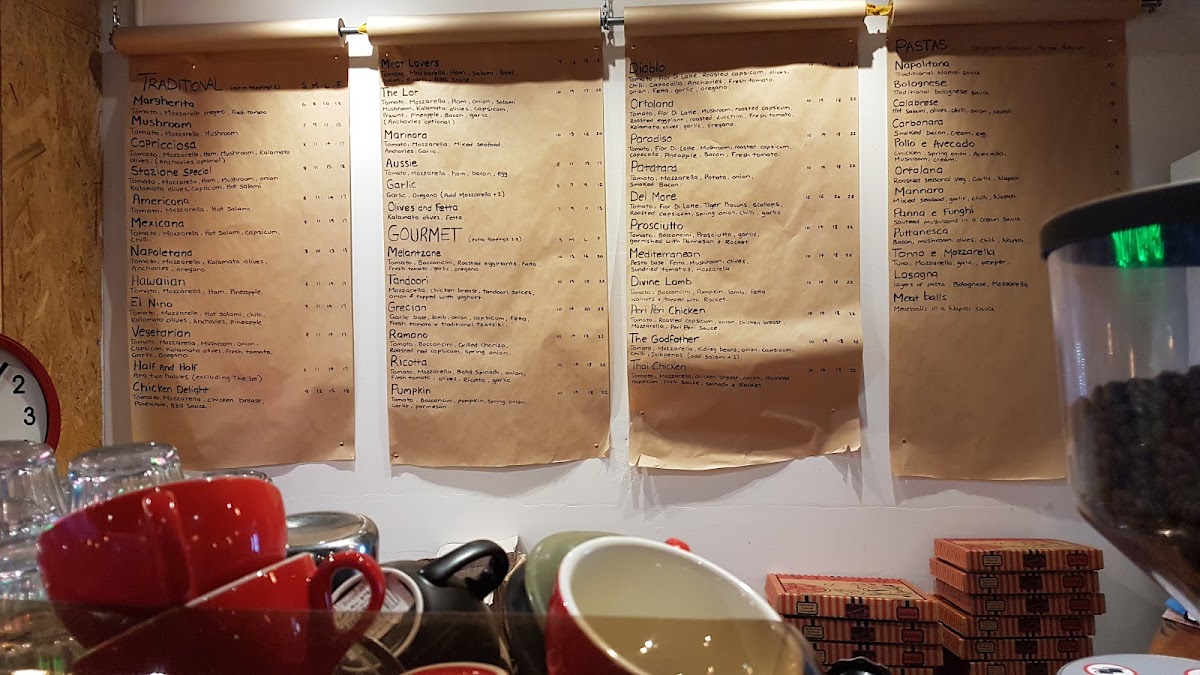 TRADITIONAL (extra toppings 2) S M L F
Margherita
Tomato, Mozzarella, oregano, Fresh tomato
Mushroom 7 9 11 15
Tomato, Mozzarella, Mushroom
Capricciosa 8 11 14 17
Tomato, Mozzarella, Ham, Mushroom, Kalamata
olives, (Anchovies optional)
Stazione Special
Tomato, Mozzarella, Ham, Mushroom, onion
Kalamata olives, capsicum, Hot salami
Americana 8 11 14 17
Tomato, Mozzarella, Hot Salami
Mexicana 8 11 14 17
Tomato, Mozzarella, Hot Salami, capsicum,
Chilli
Napoletana
Tomato, Mozzarella, Kalamata olives,
Anchovies, oregano
Hawaiian 8 11 14 17
Tomato, Mozzarella, Ham, Pineapple
El Nino 8 11 14 17
Tomato, Mozzarella, Hot Salami, chilli,
Kalamata olives, Anchovies, Pineapple
Vegetarian 8 11 14 17
Tomato, Mozzarella, Mushroom, onion,
capsicum, Kalamata olives, Fresh tomato,
Garlic, Oregano
Half And Half
Any two halves (excluding The lor)
Chicken Delight 9 12 15 18
Tomato, Mozzarella, chicken breast,
Pineapple, BBQ Sauce
Meat Lovers
Tomato, Mozzarella, Ham, Salami, Beef,
BBQ Sauce
The Lor 10 14 17 20
Tomato, Mozzarella, Ham, onion, salami
Mushroom, Kalamata olives, capsicum,
Prawns, Pineapple, Bacon, garlic,
(Anchovies optional)
Marinara
Tomato, Mozzarella, Mixed Seafood,
Anchovies, Garlic
Aussie 8 11 14 17
Tomato, Mozzarella, Ham, bacon, egg
Garlic 5 7 9 12
Garlic, Oregano (Add Mozzarella +1)
Olives and Fetta 7 9 11 15
Kalamata olives, Fetta
GOURMET (extra toppings S M L F
Melanzane
Tomato, Bocconcini, Roasted eggplants, Fetta
Fresh tomato, garlic, oregano
Tandoori
Mozzarella, chicken breast, tandoori spices,
onion & topped with yoghurt
Grecian
Garlic base, lamb, onion, capsicum, Fetta,
Fresh tomato & traditional tzatziki
Romano
Tomato, Bocconcini, Grilled Chorizo,
Roasted red capsicum, spring onion
Ricotta
Tomato, Mozzarella, Baby Spinach, onion,
Fresh tomato, olives, Ricotta, garlic
Pumpkin
Tomato, Bocconcini, pumpkin, spring onion
Garlic, parmesan
Diablo
Tomato, Fior Di Latte, Roasted capsicum, olives,
chilli, Capocollo, Anchovies, Fresh tomato,
onion, Fetta, garlic, oregano
Ortolano
Tomato, Fior Di Latte, Mushroom, roasted capsicum,
Roasted eggplant, roasted zucchini, Fresh tomato,
Kalamata olives, garlic, oregano
Paradiso
Tomato, Fior Di Latte, Mushroom, roasted capsicum,
capocollo, Pineapple, Bacon, Fresh tomato
Patatara
Tomato, Mozzarella, Potato, onion,
Smoked Bacon
Del Mare
Tomato, Fior Di Latte, Tiger Prawns, scallops,
Roasted capsicum, spring onion, chilli, garlic
Prosciutto
Tomato, Bocconcini, Prosciutto, garlic,
garnished with Parmesan & Rocket
Mediterranean
Pesto base, Fetta, Mushroom, olives,
Sundried tomatos, Mozzarella
Divine Lamb
Tomato, Bocconcini, Pumpkin, lamb, Fetta
walnuts & topped with Rocket
Peri Peri Chicken
Tomato, Roasted capsicum, onion, chicken breast,
Mozzarella, Peri Peri Sauce
The Godfather
Tomato, Mozzarella, Kidney beans, onion, capsicum,
Chilli, Jalapenos (add salami +1)
Thai Chicken
Tomato, Mozzarella, chicken breast, onion, Roasted
capsicum, Chilli Sauce, Spinach & Rocket
PASTAS
Napolitana
Traditional Napoli sauce
Bolognese
Traditional bolognese sauce
Calabrese
Hot salami, olives, chilli, onion, Napoli
Carbonara
Smoked bacon, cream, egg
Pollo e Avocado
Chicken, spring onion, Avocado,
Mushroom, cream
Ortolana
Roasted seasonal veg, Garlic, Napoli
Marinara
Mixed seafood, garlic, chilli, Napoli
Panna e Funghi
Sauteed mushrooms in a Cream Sauce
Puttanesca
Bacon, mushroom, olives, chilli, Napoli
Tonno e Mozzarella
Tuna, Mozzarella, garlic, pepper
Lasagna
layers of pasta, Bolognese, Mozzarella
Meat balls
Meatballs in a Napoli sauce
2
3